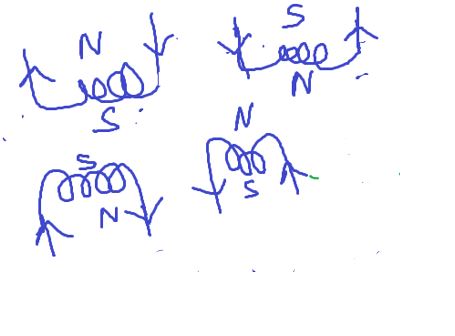 N
S
S
N
S
N
N
S